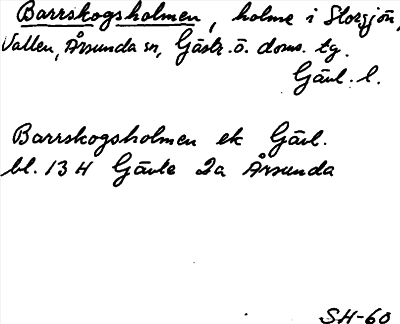 Barrskogsholmen, holme i Storsjön,
Vallen, Årsunda sn, Gästr. ö. doms. tg.
Gävl. l.
Barrskogsholmen ek Gävl.
bl. 13 H Gävle 2a Årsunda
SH-60